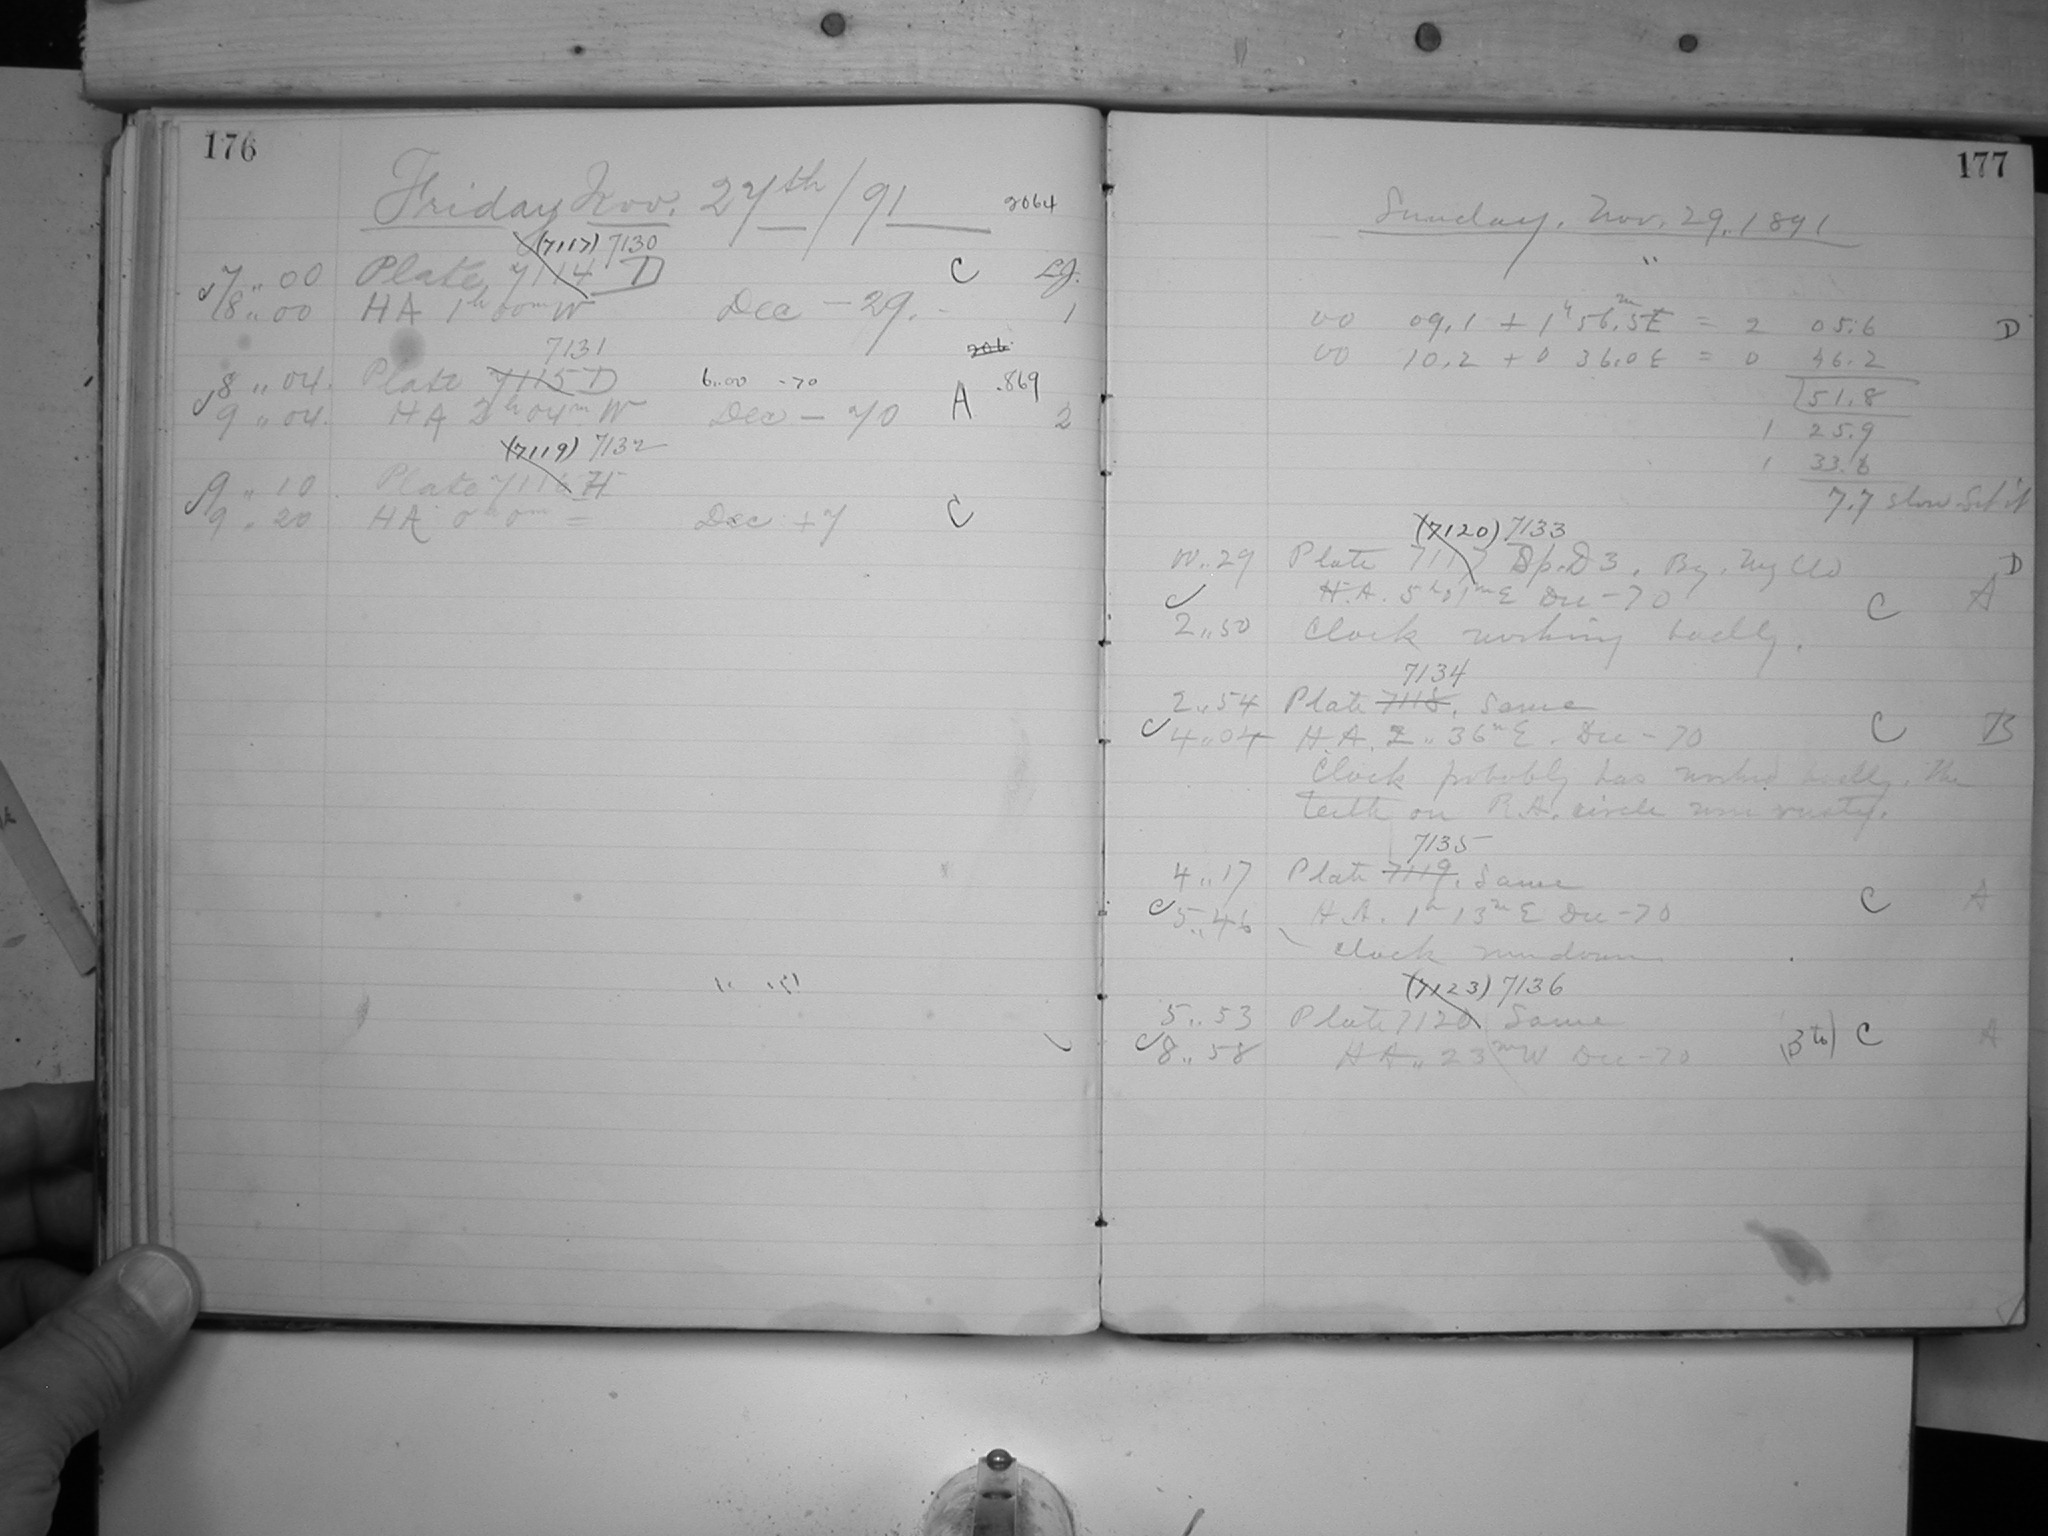 176
Friday Nov. 27th/91
2064
(7117) 7130
7,,00 Plate 7114 D C
8,,00 HA 1h 00m W Dec - 29. 1
7131 206
8,,04. Plate 7115 D 6,,00 -70 A .869
9,,04. HA 2h 04m W Dec - 70 2
(7119) 7132
9,,10 Plate 7116 H
9,,20 HA 0h 0m = Dec + 7 C
177
Sunday, Nov. 29, 1891
00 09.1 + 1h 56.5m E = 2 05.6 D
00 10.2 + 0 36.0 E = 0 46.2
51.8
1 25.9
1 33.6
7.7 slow Set it
(7120) 7133
00..29 Plate 7117 Sp. D 3. By. D
H.A. 5h 01m E Dec -70 C A
2,,50 Clock working badly.
7134
2,,54 Plate 7118. Same
4,,04 H.A. 2,,36m E. Dec -70 C B
Clock probably has worked badly. The
teeth on R.A. circle were rusty.
7135
4,,17 Plate 7119. Same
5,,46 H.A. 1h 13m E Dec -70 C A
Clock rundown
(7123) 7136
5,,53 Plate 7120 Same
8,,58 HA,, 23m W Dec -70 (B to) C A